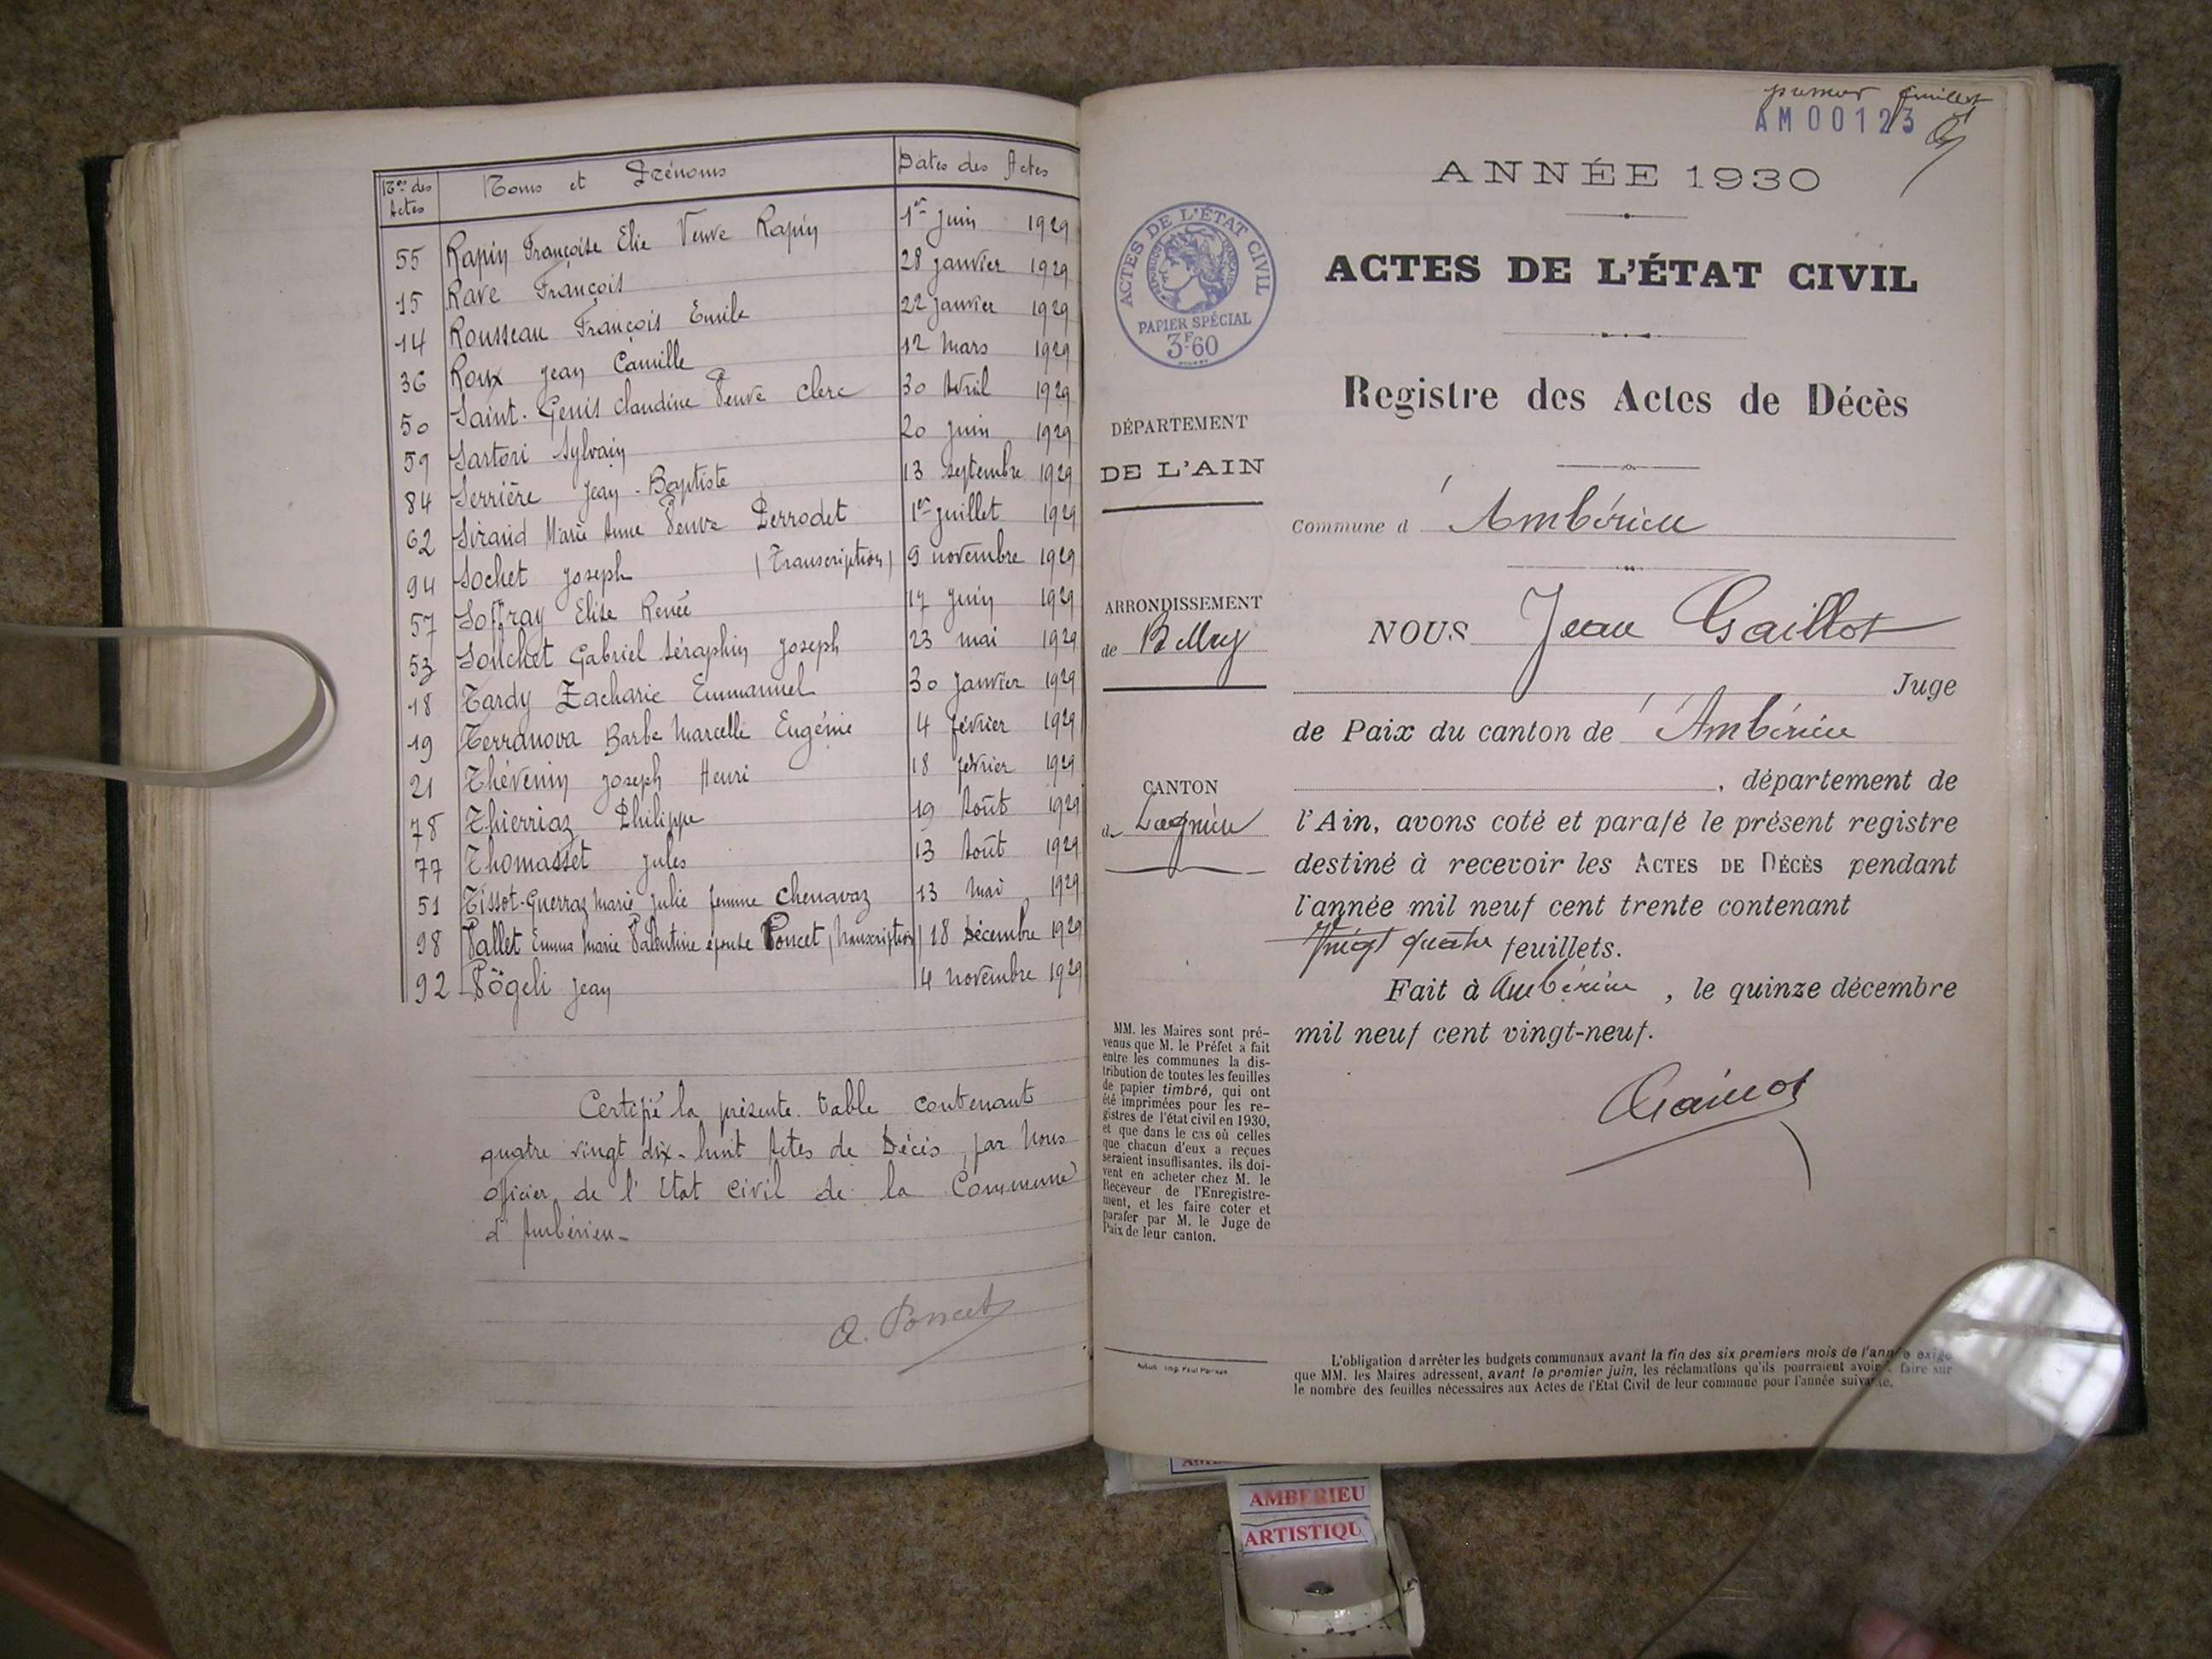 Nos des Actes
Noms et Prénoms
Dates des Actes
55 Rapin Françoise Elie Veuve Rapin 1er juin 1929
15 Rave François 28 janvier 1929
14 Rousseau François Emile 22 janvier 1929
36 Roux Jean Camille 12 Mars 1929
50 Saint-Genis Claudine Veuve Clerc 30 Avril 1929
59 Sartori Sylvain 20 juin 1929
84 Serrière Jean-Baptiste 13 septembre 1929
62 Siraud Marie Anne Veuve Perrodet 1er juillet 1929
94 Sochet Joseph (Transcription) 9 novembre 1929
57 Soffray Elise Renée 17 juin 1929
53 Souchet Gabriel Séraphin Joseph 23 mai 1929
18 Tardy Zacharie Emmanuel 30 janvier 1929
19 Terranova Barbe Marcelle Eugénie 4 février 1929
21 Thévenin Joseph Henri 18 février 1929
78 Thierriaz Philippe 19 Août 1929
77 Thomasset Jules 13 Août 1929
51 Tissot-Guerraz Marie Julie femme Chenavaz 13 Mai 1929
98 Vallet Emma Marie Valentine épouse Poncet (Transcription) 18 Décembre 1929
92 Vögeli Jean 4 novembre 1929
Certifié la présente table contenant
quatre vingt dix-huit Actes de Décès, par Nous
officier de l'Etat civil de la Commune
d'Ambérieu-
A. Poncet
premier feuillet
AM00123
ANNÉE 1930
ACTES DE L'ÉTAT CIVIL
PAPIER SPÉCIAL
3F60
ACTES DE L'ÉTAT CIVIL
Registre des Actes de Décès
DÉPARTEMENT
DE L'AIN
Commune d'Ambérieu
ARRONDISSEMENT
de Belley
NOUS Jean Gaillot
Juge
de Paix du canton de Ambérieu
CANTON
de Lagnieu
, département de
l'Ain, avons coté et parafé le présent registre
destiné à recevoir les ACTES DE DÉCÈS pendant
l'année mil neuf cent trente contenant
Vingt quatre feuillets.
Fait à Ambérieu, le quinze décembre
mil neuf cent vingt-neuf.
MM. les Maires sont pré-
venus que M. le Préfet a fait
entre les communes la dis-
tribution de toutes les feuilles
de papier timbré, qui ont
été imprimées pour les re-
gistres de l'état civil en 1930,
et que dans le cas où celles
que chacun d'eux a reçues
seraient insuffisantes, ils doi-
vent en acheter chez M. le
Receveur de l'Enregistre-
ment, et les faire coter et
parafer par M. le Juge de
Paix de leur canton.
L'obligation d'arrêter les budgets communaux avant la fin des six premiers mois de l'année exige
que MM. les Maires adressent, avant le premier juin, les réclamations qu'ils pourraient avoir à faire sur
le nombre des feuilles nécessaires aux Actes de l'Etat Civil de leur commune pour l'année suivante.
AMBERIEU
ARTISTIQU